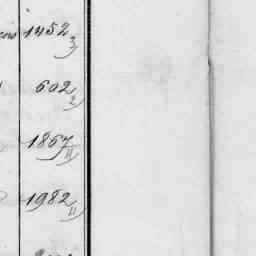 1452
3
602
2
1867
11
1982
11